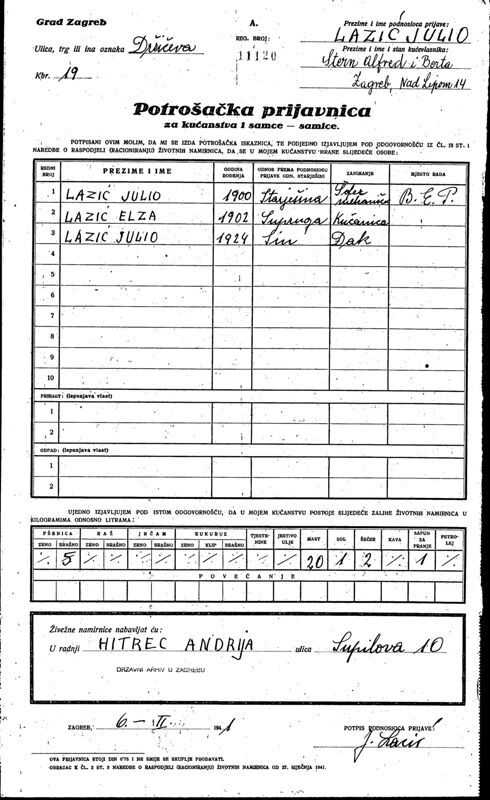 Grad Zagreb
Ulica, trg ili ina oznaka Držićeva
Kbr. 19
A.
REG. BROJ:
11120
Prezime i ime podnosioca prijave:
LAZIĆ JULIO
Prezime i ime i stan kućevlasnika:
Stern Alfred i Berta
Zagreb, Nad Lipom 14
Potrošačka prijavnica
za kućanstva i samce — samice.
POTPISANI OVIM MOLIM, DA MI SE IZDA POTROŠAČKA ISKAZNICA, TE PODJEDNO IZJAVLJUJEM POD ODGOVORNOŠĆU IZ ČL. 18 ST. 1
NAREDBE O RASPODJELI (RACIONIRANJU) ŽIVOTNIH NAMIRNICA, DA SE U MOJEM KUĆANSTVU HRANE SLIJEDEĆE OSOBE:
REDNI BROJ PREZIME I IME GODINA ROĐENJA ODNOS PREMA PODNOSIOCU PRIJAVE ODN. STARJEŠINI ZANIMANJE MJESTO RADA
1 LAZIĆ JULIO 1900 Starješina Šofer mehaničar B.E.P.
2 LAZIĆ ELZA 1902 Supruga Kućanica
3 LAZIĆ JULIO 1924 Sin Đak
4
5
6
7
8
9
10
PRIRAST: (ispunjava vlast)
1
2
OTPAD: (ispunjava vlast)
1
2
UJEDNO IZJAVLJUJEM POD ISTOM ODGOVORNOŠĆU, DA U MOJEM KUĆANSTVU POSTOJE SLIJEDEĆE ZALIHE ŽIVOTNIH NAMIRNICA U
KILOGRAMIMA ODNOSNO LITRAMA:
PŠENICA RAŽ JEČAM KUKURUZ TJESTENINE JESTIVO ULJE MAST SOL ŠEĆER KAVA SAPUN ZA PRANJE PETROLEJ
ZRNO BRAŠNO ZRNO BRAŠNO ZRNO BRAŠNO ZRNO KLIP BRAŠNO
⁒ 5 ⁒ ⁒ ⁒ ⁒ ⁒ ⁒ ⁒ ⁒ ⁒ 20 1 2 ⁒ 1 ⁒
POVEĆANJE
Živežne namirnice nabavljat ću:
U radnji HITREC ANDRIJA ulica Supilova 10
DRŽAVNI ARHIV U ZAGREBU
ZAGREB, 6. — II. 1941
POTPIS PODNOSIOCA PRIJAVE:
J. Lazić
OVA PRIJAVNICA STOJI DIN 0'75 I NE SMIJE SE SKUPLJE PRODAVATI.
OBRAZAC K ČL. 2 ST. 2 NAREDBE O RASPODJELI (RACIONIRANJU) ŽIVOTNIH NAMIRNICA OD 27. SIJEČNJA 1941.